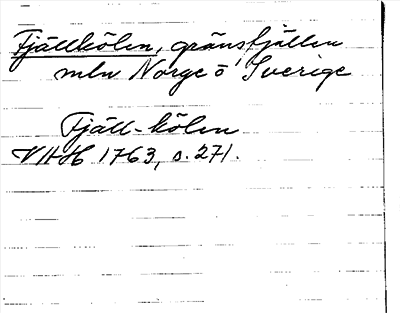 Fjällkölen, gränsfjällen
mln Norge o Sverige
Fjäll-kölen
VHH 1763, s. 271.